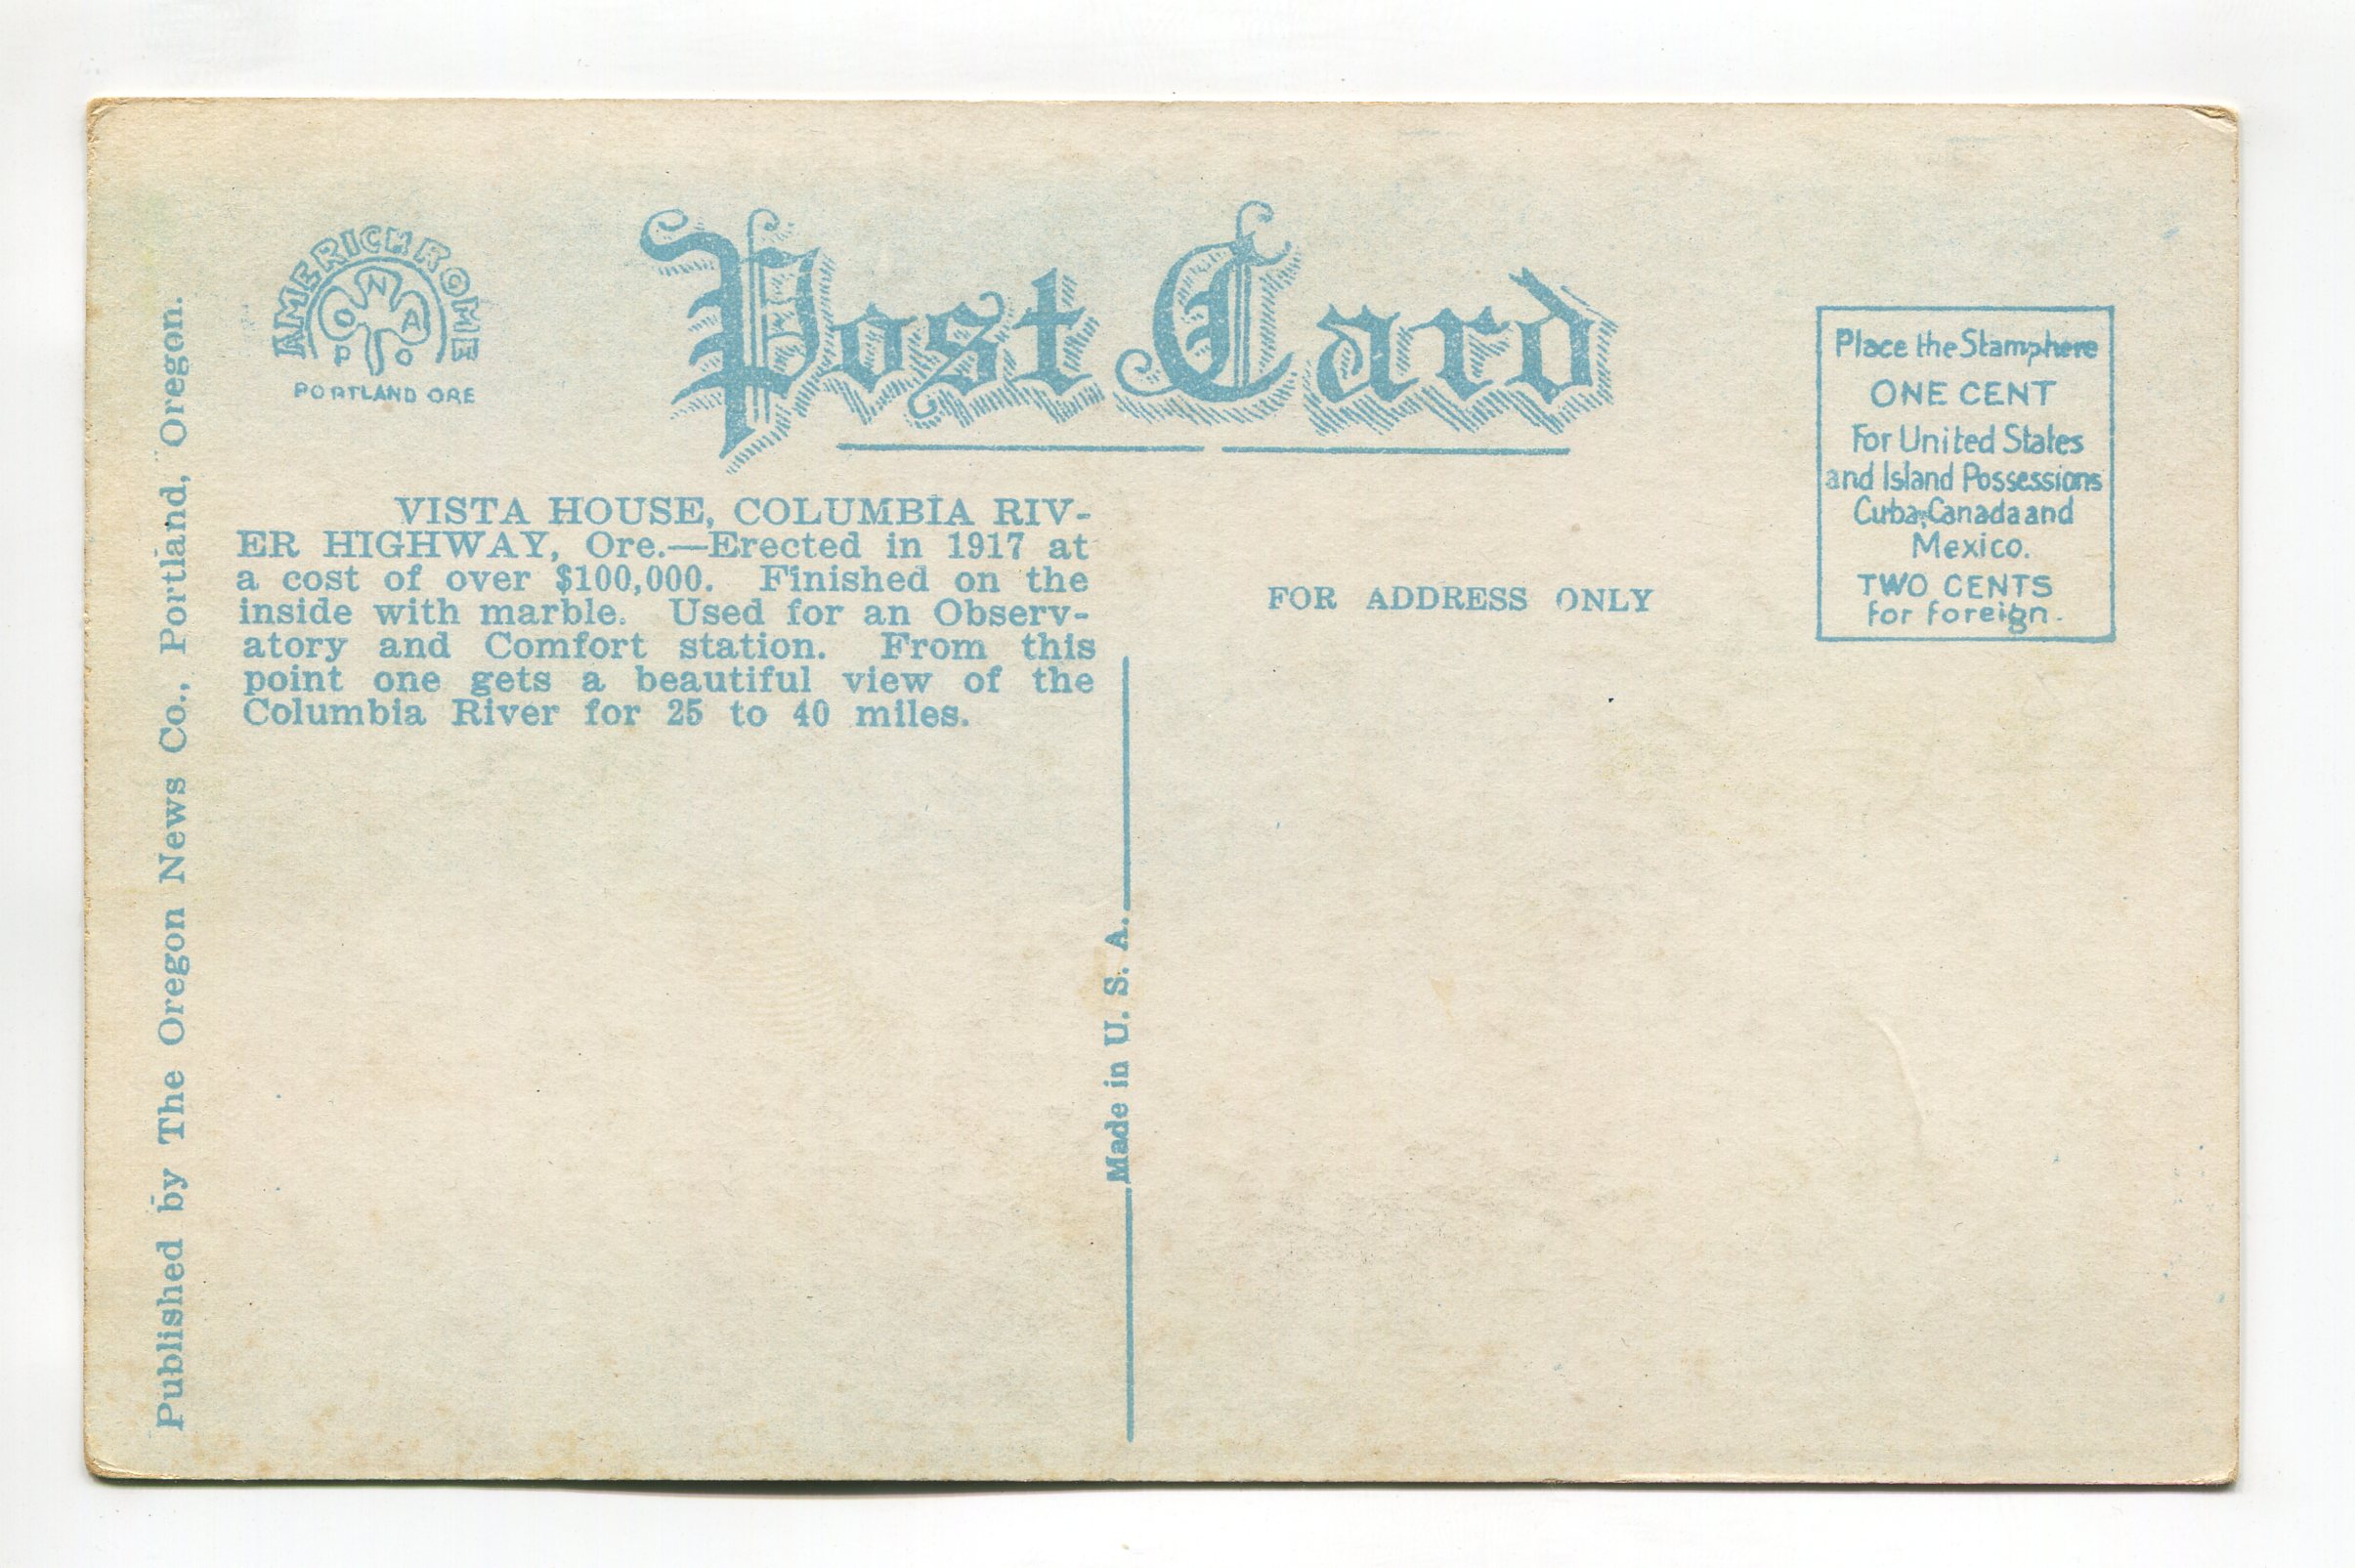 AMERICHROME
O N A
P O
PORTLAND ORE
Post Card
Place the Stamp here
ONE CENT
For United States
and Island Possessions
Cuba, Canada and
Mexico.
TWO CENTS
for foreign.
VISTA HOUSE, COLUMBIA RIV-
ER HIGHWAY, Ore.—Erected in 1917 at
a cost of over $100,000. Finished on the
inside with marble. Used for an Observ-
atory and Comfort station. From this
point one gets a beautiful view of the
Columbia River for 25 to 40 miles.
FOR ADDRESS ONLY
Made in U. S. A.
Published by The Oregon News Co., Portland, Oregon.